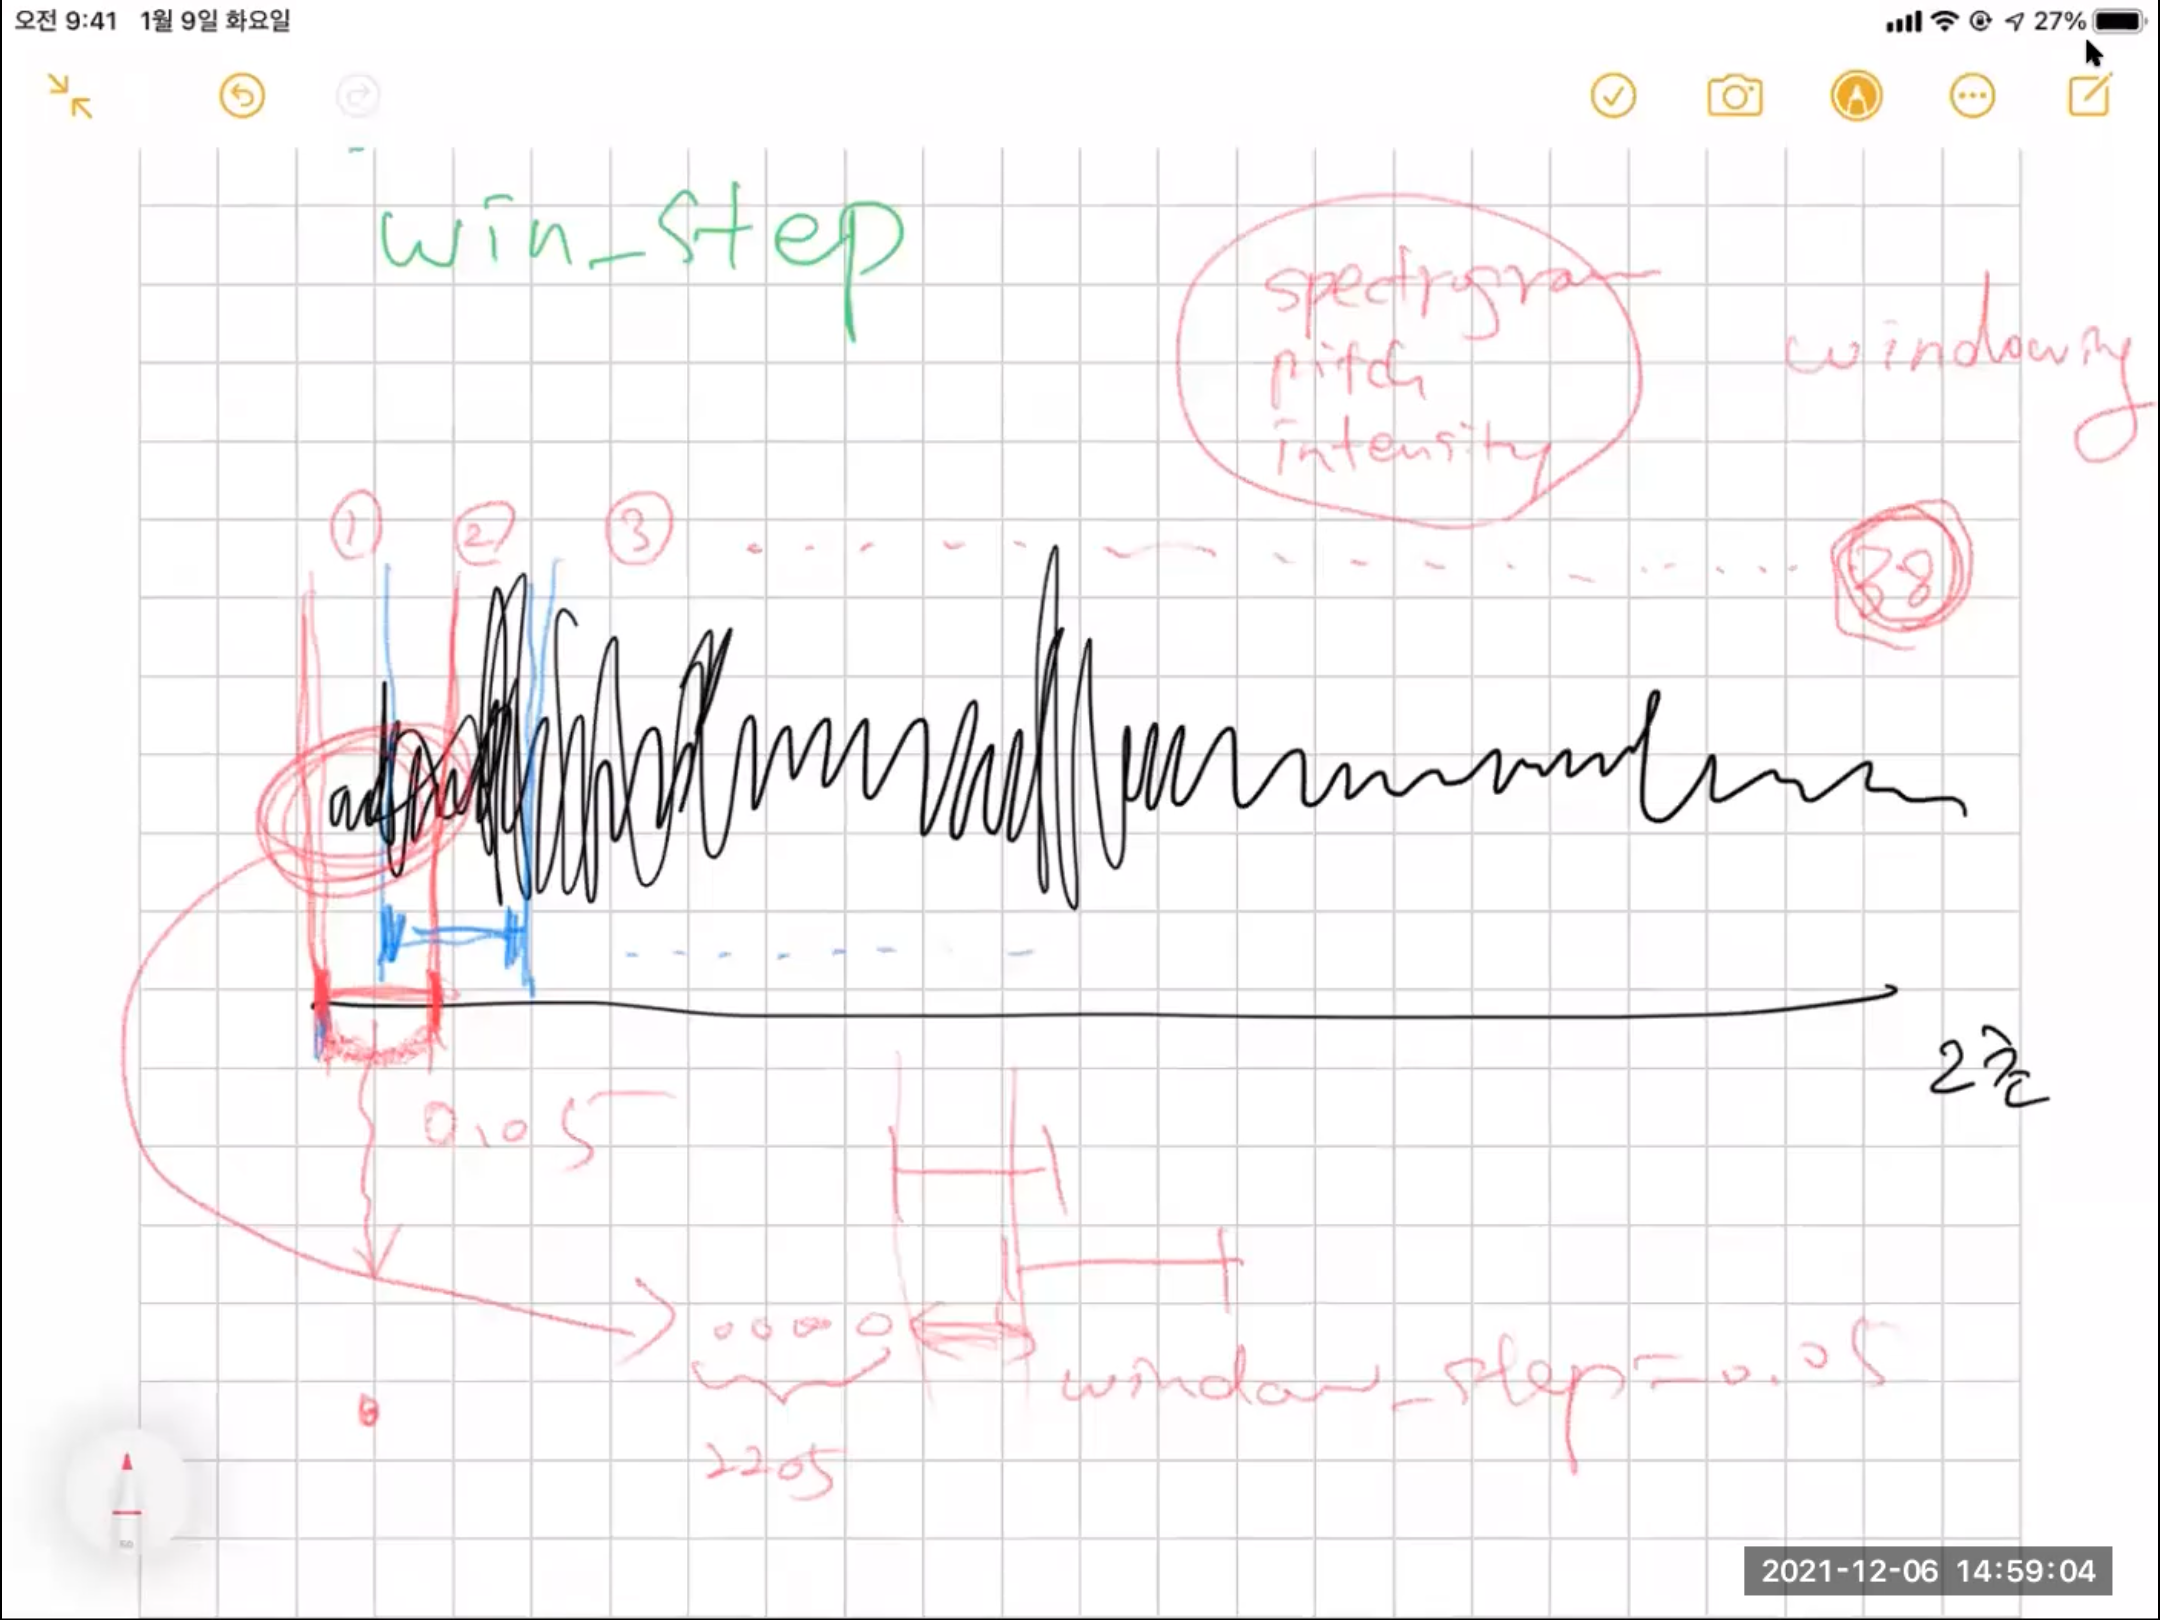 오전 9:41 1월 9일 화요일
27%
win_step
spectrogram
pitch
intensity
windowing
① ② ③
38
2초
0.05
window_step=0.05
2205
50
2021-12-06 14:59:04